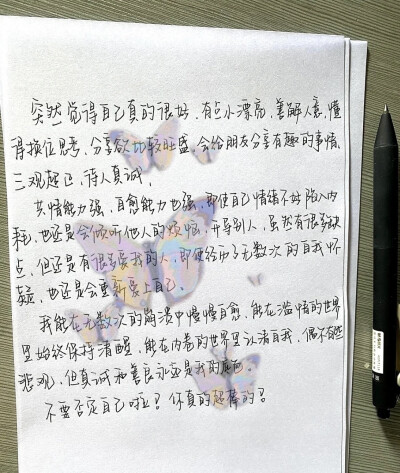 突然觉得自己真的很好，有点小漂亮，善解人意，懂
得换位思考，分享欲比较旺盛，会给朋友分享有趣的事情，
三观超正，待人真诚，
共情能力强，自愈能力也强，即使自己情绪不好陷入内
耗，也还是会倾听他人的烦恼，开导别人，虽然有很多缺
点，但还是有很多爱我的人，即便经历了无数次的自我怀
疑，也还是会重新爱上自己。
我能在无数次的崩溃中慢慢自愈，能在滥情的世界
里始终保持清醒，能在内卷的世界里认清自我，偶尔有些
悲观，但真诚和善良永远是我的底色。
不要否定自己啦！你真的超棒的！